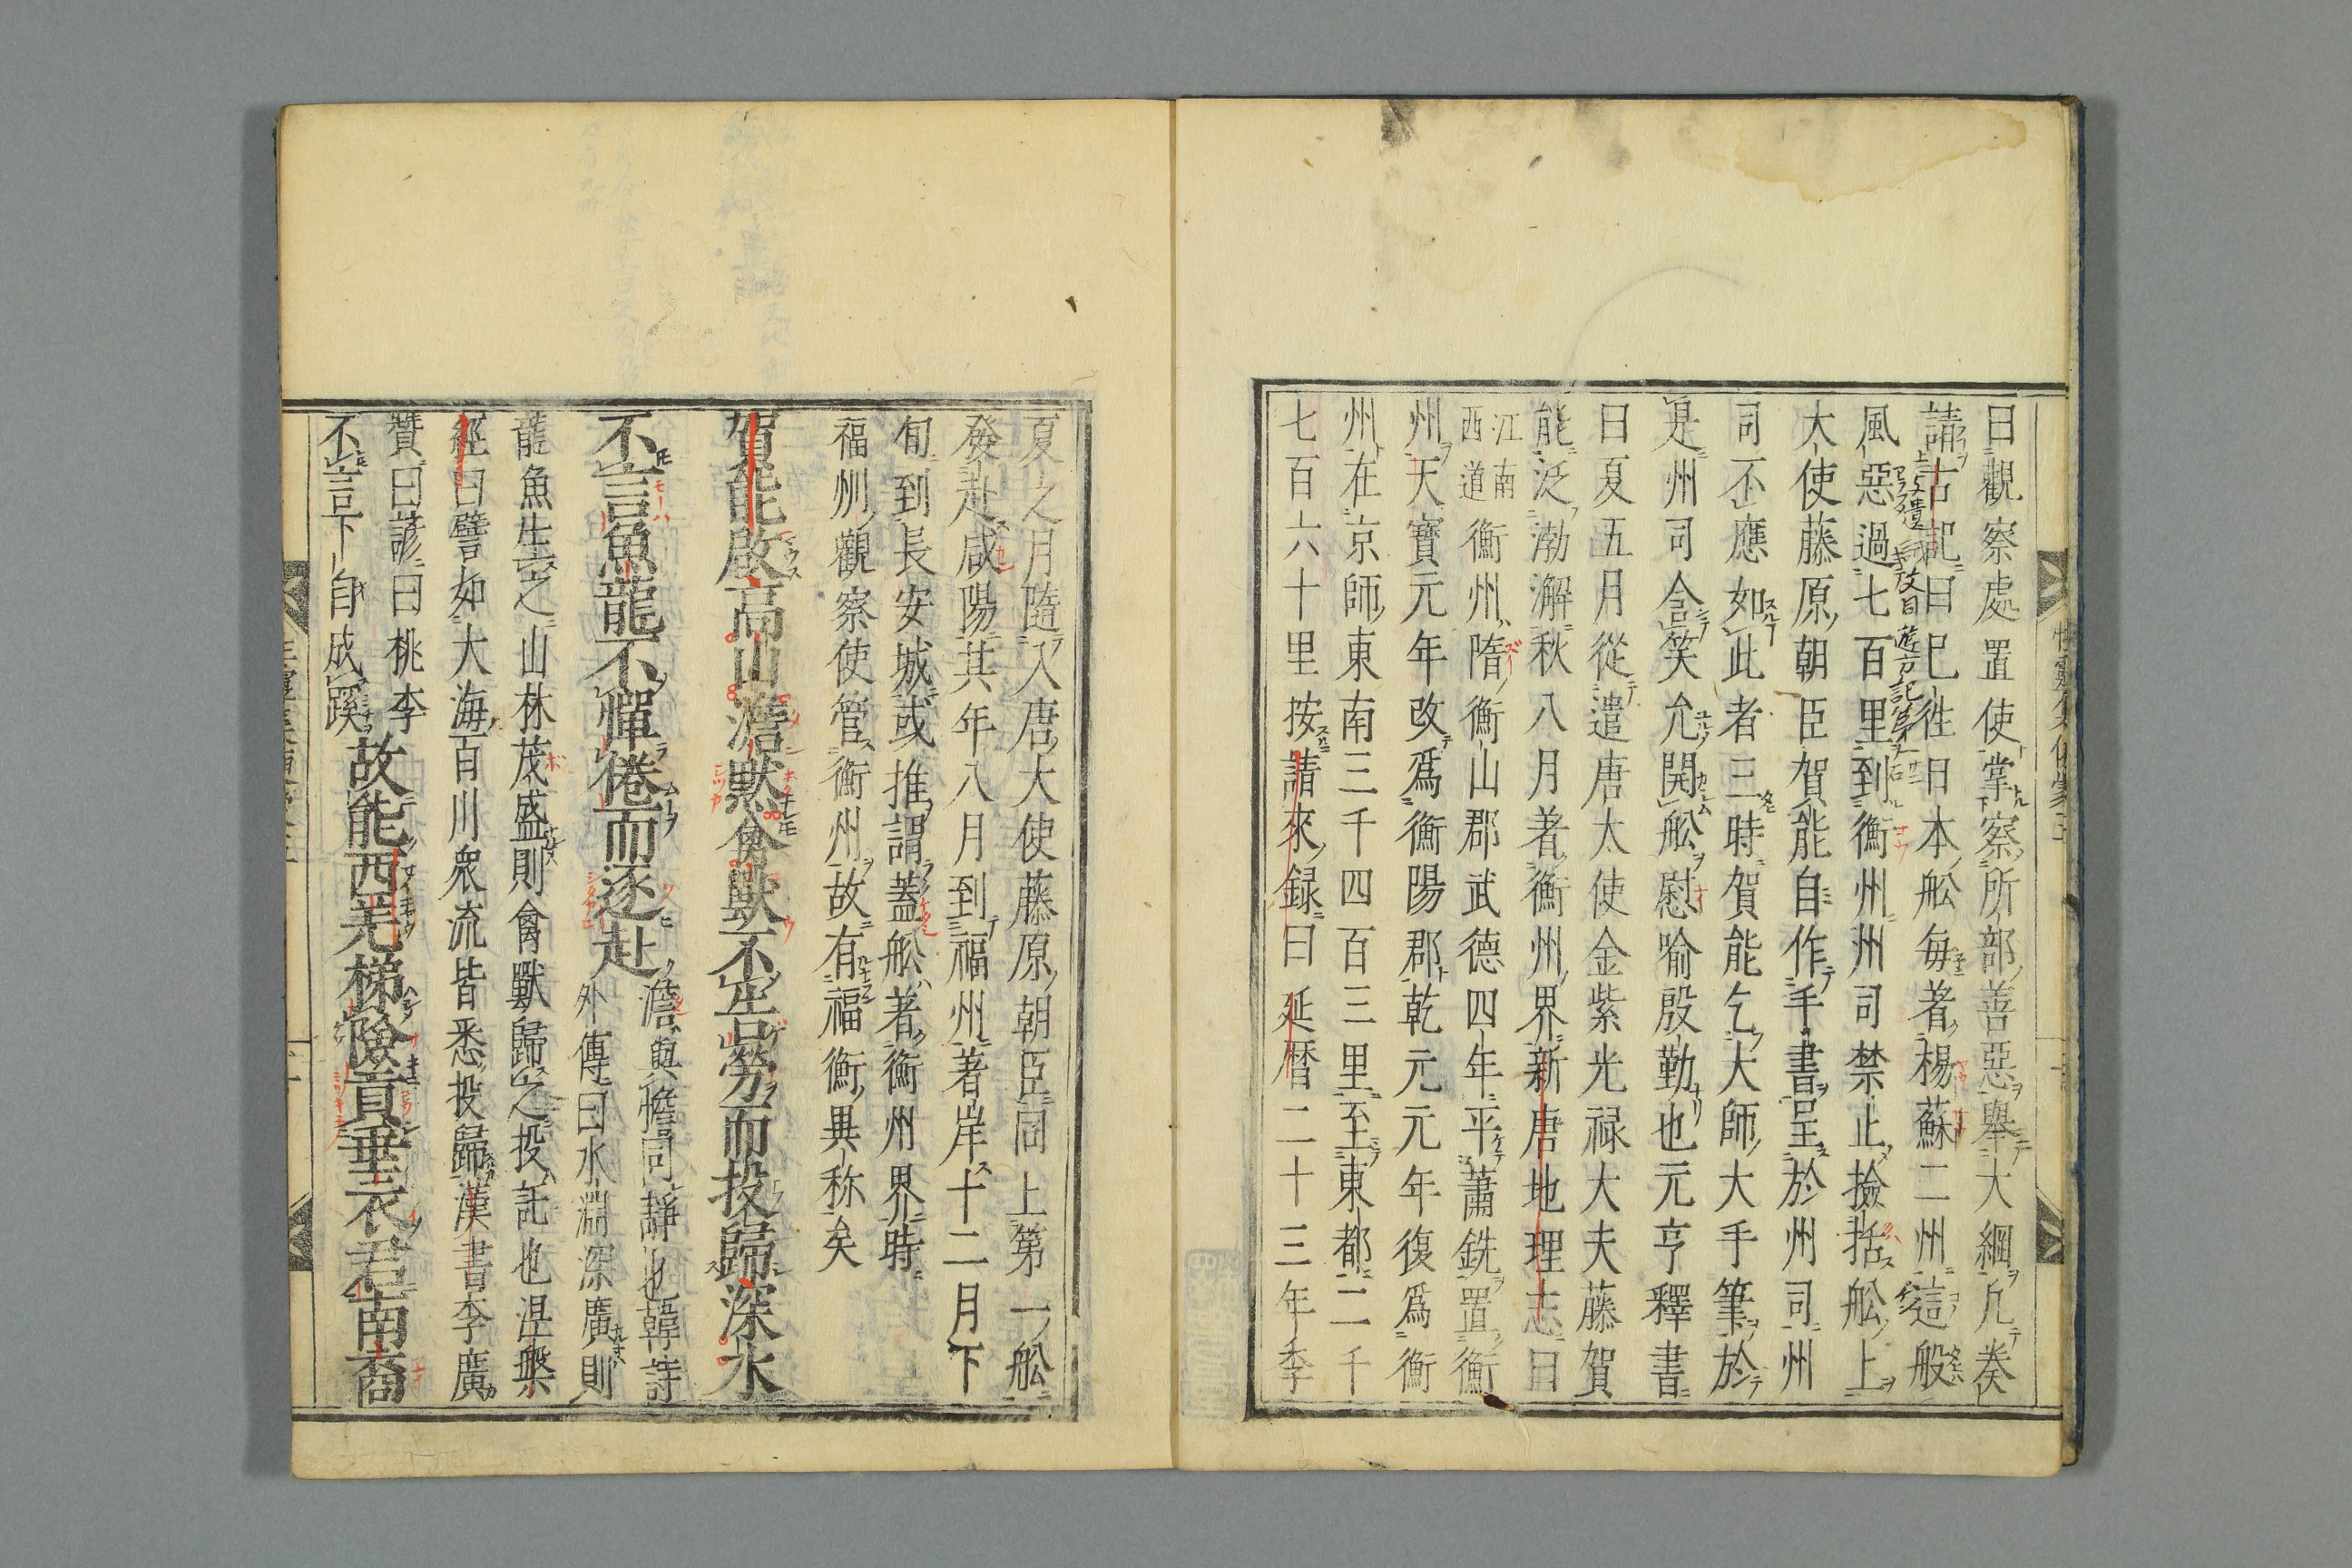 曰觀察處置使掌察所部善惡舉大綱凡奏
請古記曰已徃日本舩毎著楊蘇二州這般
風惡過七百里到衡州州司禁止撿括舩上
大使藤原朝臣賀能自作手書呈於州司州
司不應如此者三時賀能乞大師大手筆於
是州司含笑允開舩慰喻殷勤也元亨釋書
曰夏五月從遣唐大使金紫光禄大夫藤賀
能泛渤澥秋八月著衡州界新唐地理志曰
江南
西道
衡州隋衡山郡武德四年平蕭銑置衡
州天寶元年改爲衡陽郡乾元元年復爲衡
州在京師東南三千四百三里至東都二千
七百六十里按請來録曰延暦二十三年季
夏之月隨入唐大使藤原朝臣同上第一舩
發赴咸陽其年八月到福州著岸十二月下
旬到長安城或推謂蓋舩著衡州界時
福州觀察使管衡州故有福衡異称矣
賀能啟高山澹默禽獸不告勞而投歸深水
不言魚龍不憚倦而逐赴
澹與憺同靜也韓詩
外傳曰水淵深廣則
龍魚生之山林茂盛則禽獸歸之投託也涅槃
經曰譬如大海百川衆流皆悉投歸漢書李廣
贊曰諺曰桃李
不言下自成蹊
故能西羌梯險貢垂衣君南裔